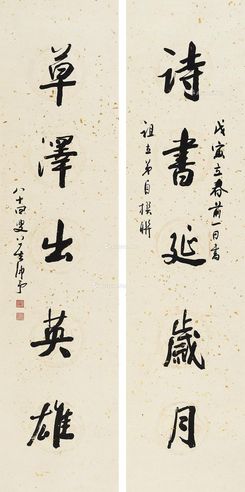 诗書延歲月
戊寅立春前一日書
詛立弟自撰聯
草澤出英雄
八十四叟